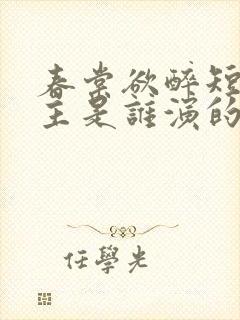 春棠欲醉短
主是誰演的
任學光